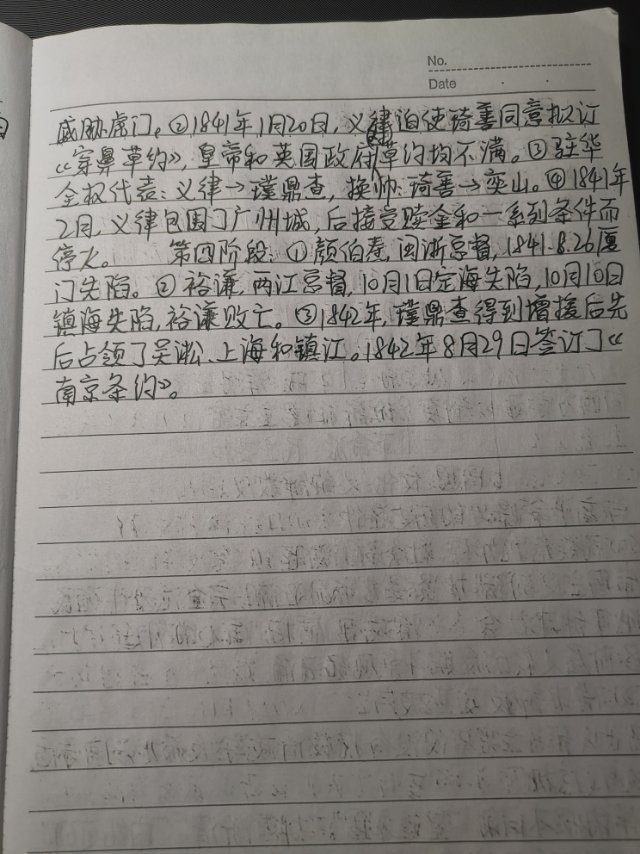 No.
Date
威胁虎门。②1841年1月20日,义律迫使琦善同意拟订
《穿鼻草约》,皇帝和英国政府草约均不满。③驻华
全权代表:义律→璞鼎查,换帅:琦善→奕山。④1841年
2月,义律包围了广州城,后接受赎金和一系列条件而
停火。 第四阶段:①颜伯焘,闽浙总督,1841.8.26厦
门失陷。②裕谦,两江总督,10月1日定海失陷,10月10日
镇海失陷,裕谦败亡。③1842年,璞鼎查得到增援后先
后占领了吴淞、上海和镇江。1842年8月29日签订了《
南京条约》。